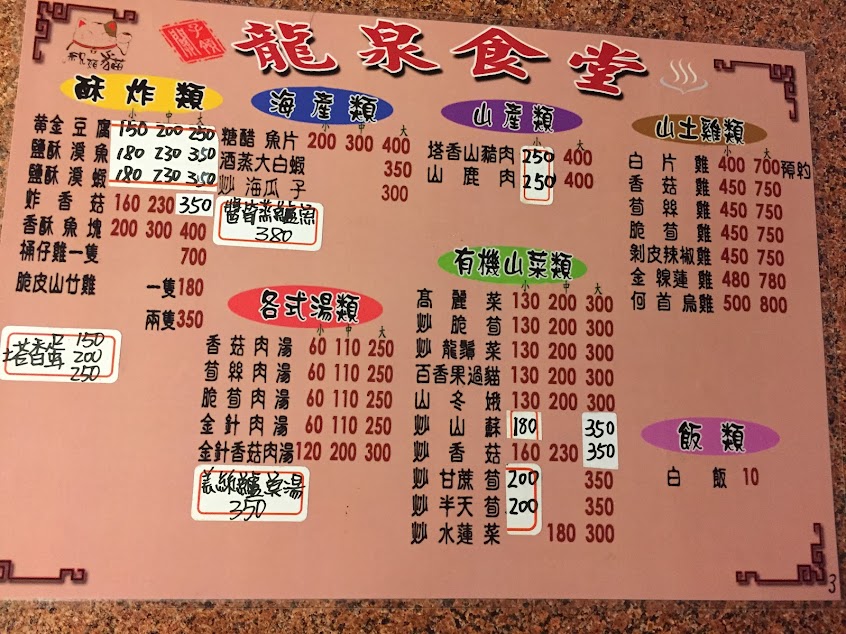 龍泉食堂
酥炸類
小 中 大
黃金豆腐 150 200 250
鹽酥溪魚 180 230 350
鹽酥溪蝦 180 230 350
炸香菇 160 230 350
香酥魚塊 200 300 400
桶仔雞一隻 700
脆皮山竹雞 一隻180
兩隻350
150
塔香蜇 200
250
海產類
小 中 大
糖醋魚片 200 300 400
酒蒸大白蝦 350
炒海瓜子 300
醬苗蒸鱸魚
380
各式湯類
小 中 大
香菇肉湯 60 110 250
筍絲肉湯 60 110 250
脆筍肉湯 60 110 250
金針肉湯 60 110 250
金針香菇肉湯 120 200 300
薑絲鱸魚湯
350
山產類
小 中 大
塔香山豬肉 250 400
山鹿肉 250 400
有機山菜類
小 中 大
高麗菜 130 200 300
炒脆筍 130 200 300
炒龍鬚菜 130 200 300
百香果過貓 130 200 300
山冬娥 130 200 300
炒山蘇 180 350
炒香菇 160 230 350
炒甘蔗筍 200 350
炒半天筍 200 350
炒水蓮菜 180 300
山土雞類
小 大
白片雞 400 700 預約
香菇雞 450 750
筍絲雞 450 750
脆筍雞 450 750
剝皮辣椒雞 450 750
金線蓮雞 480 780
何首烏雞 500 800
飯類
白飯 10
3